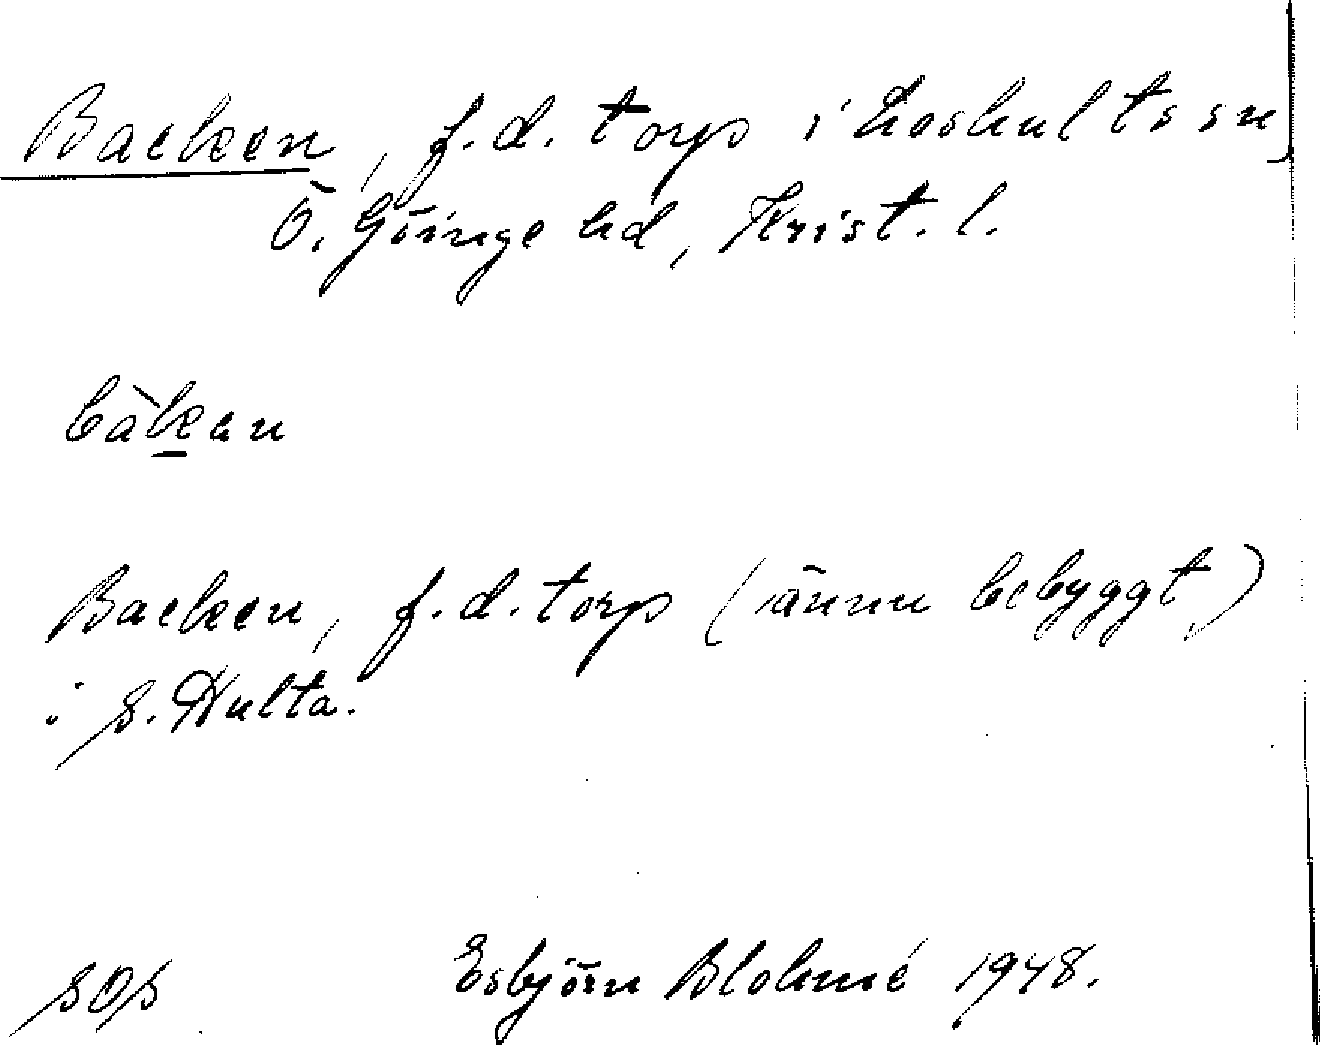 Backen, f.d. torp i Loshults sn
Ö. Göinge hd, Krist. l.
bàkan
Backen, f.d. torp (ännu bebyggt)
i S. Hulta.
SOS Esbjörn Blohmé 1948.